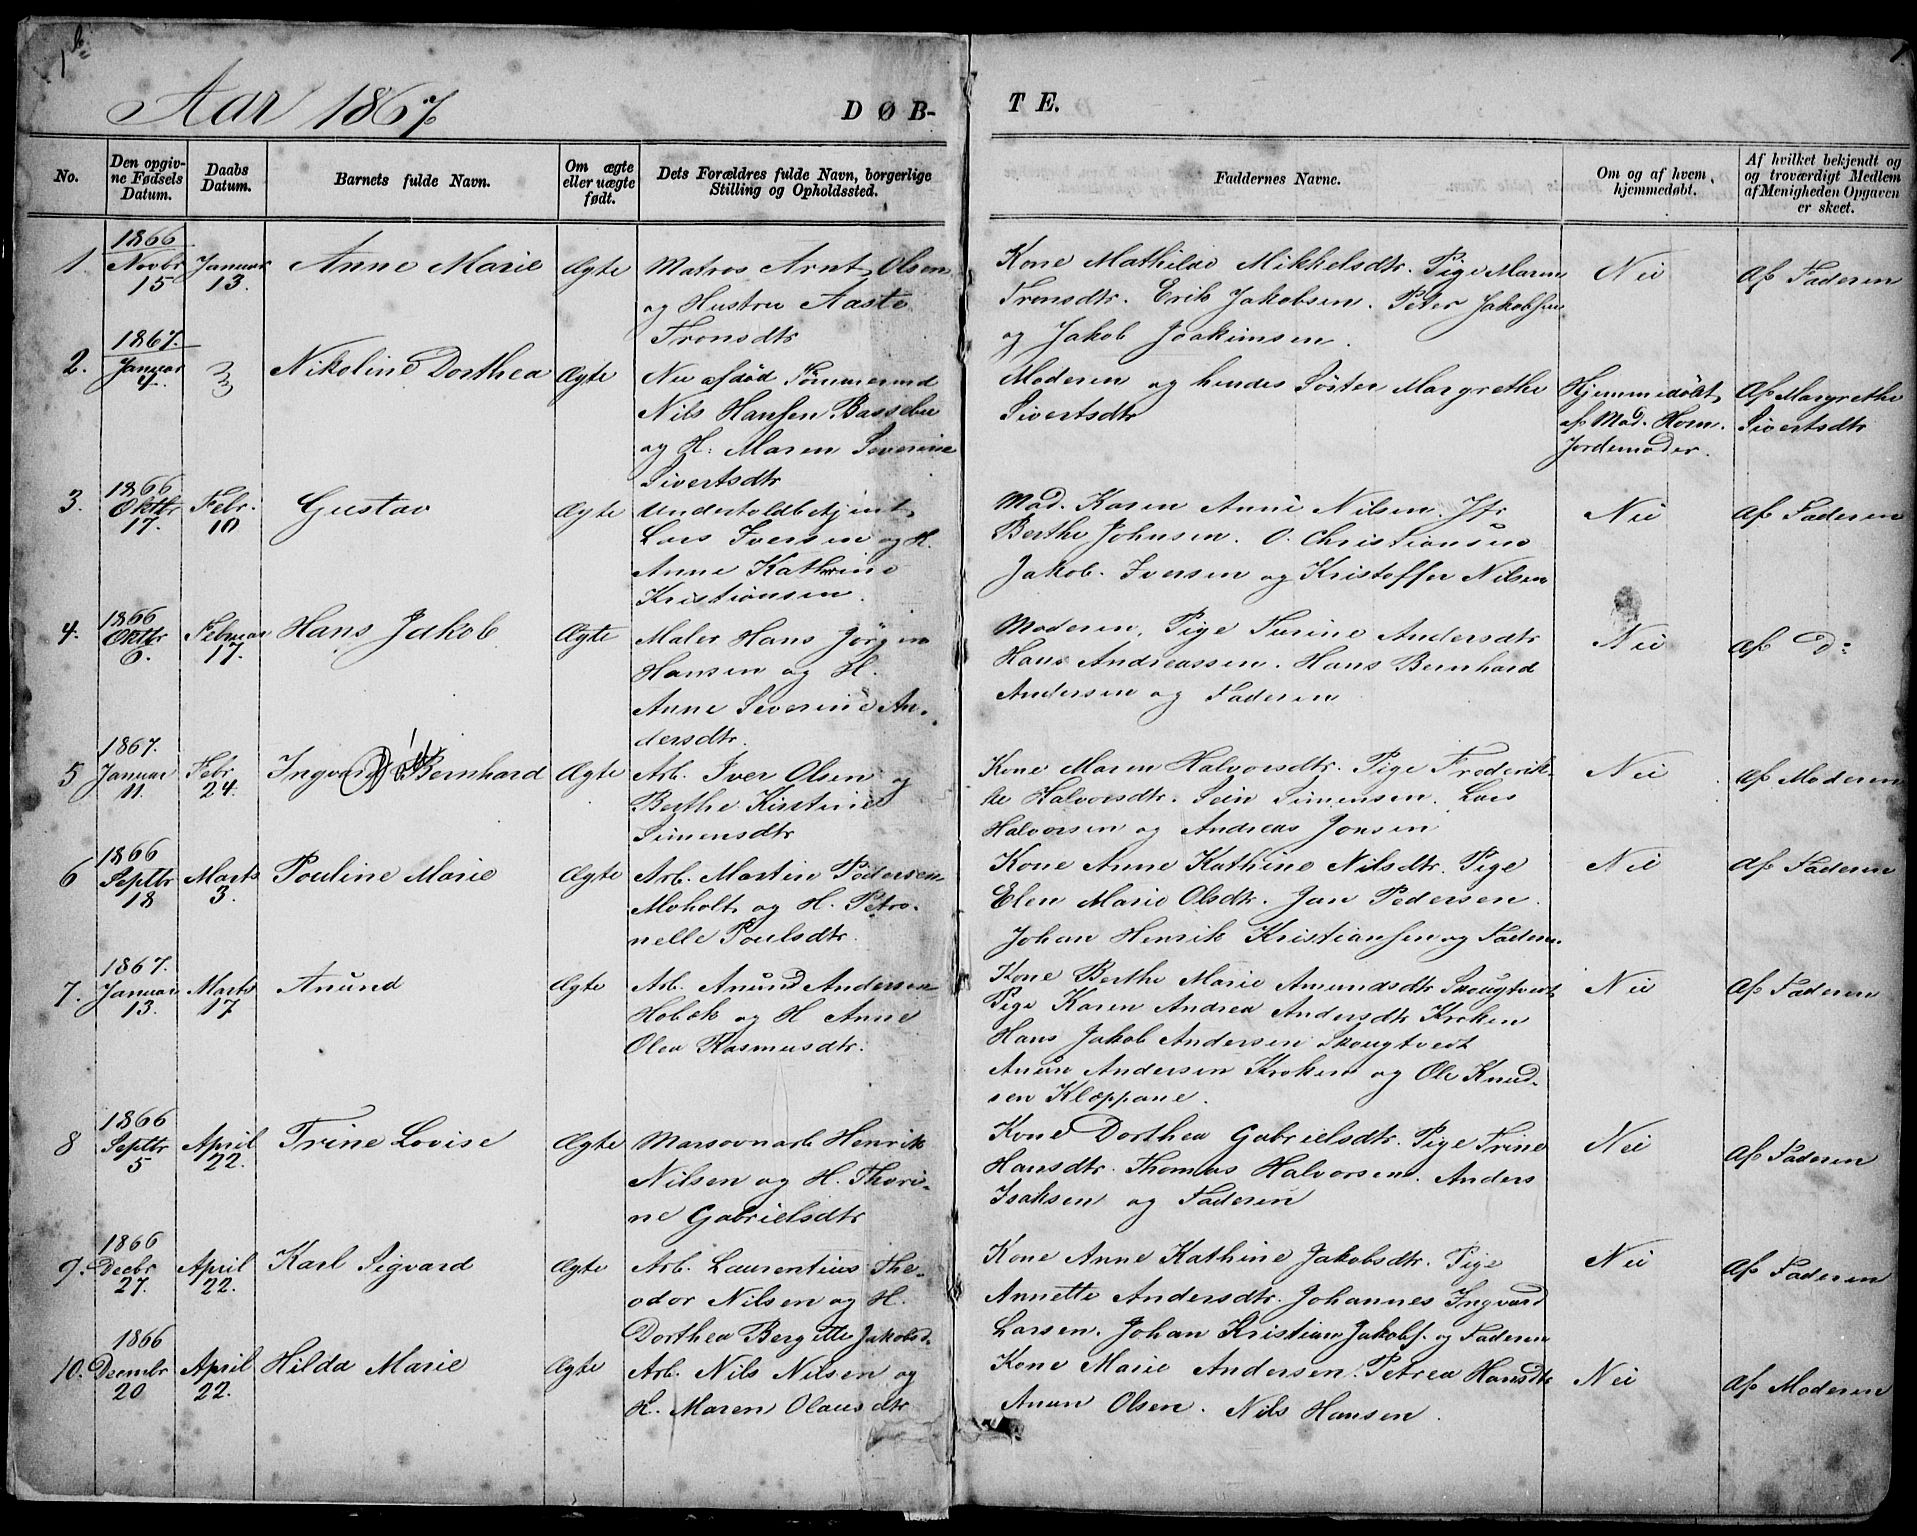 1b.
1
Aar 1867
DØB-
TE.
No.
Den opgiv-
ne Fødsels
Datum.
Daabs
Datum.
Barnets fulde Navn.
Om ægte
eller uægte
født.
Dets Forældres fulde Navn, borgerlige
Stilling og Opholdssted.
Faddernes Navne.
Om og af hvem
hjemmedøbt.
Af hvilket bekjendt og
og troværdigt Medlem
af Menigheden Opgaven
er skeet.
1.
1866
Novbr
15
Januar
13.
Anne Marie
Ægte
Matros Arnt Olsen
og Hustru Aaste
Tronsdtr
Kone Mathilde Mikkelsdtr. Pige Maren
Tronsdtr. Erik Jakobsen. Peter Jakobsen
og Jakob Joakimsen.
Nei
Af Faderen
2.
1867.
Januar
4.
3/3
Nikoline Dorthea
Ægte
Nu afdød Tømmermd
Nils Hansen Bassebu
og H. Maren Severine
Sivertsdtr
Moderen og hendes Søster Margrethe
Sivertsdtr
Hjemmedøbt
af Mad. Horn.
Jordemoder.
Af Margrethe
Sivertsdtr
3.
1866
Oktbr
17.
Febr.
10
Gustav
Ægte
Undertoldbetjent
Lars Iversen og H.
Anne Kathrine
Kristiansen.
Mad. Karen Anne Nilsen. Jfr
Berthe Johnsen. O. Christiansen
Jakob Iversen og Kristoffer Nilsen
Nei
Af Faderen
4.
1866
Oktbr
6.
Februar
17.
Hans Jakob
Ægte
Maler Hans Jørgen
Hansen og H.
Anne Severine An-
dersdtr.
Moderen, Pige Turine Andersdtr
Hans Andreassen. Hans Bernhard
Andersen og Faderen
Nei
Af Do
5
1867.
Januar
11.
Febr.
24.
Ingvard Bernhard
Ægte
Arb. Iver Olsen og
Berthe Kirstine
Simensdtr
Kone Maren Halvorsdtr. Pige Frederik-
ke Halvorsdtr. Sein Simensen. Lars
Halvorsen og Andreas Jonsen
Nei
Af Moderen
6
1866
Septbr
18
Marts
3.
Pouline Marie
Ægte
Arb. Martin Pedersen
Moholt og H. Petro-
nelle Poulsdtr.
Kone Anne Kathine Nilsdtr. Pige
Elen Marie Olsdtr. Jan Pedersen.
Johan Henrik Kristiansen og Faderen
Nei
Af Faderen
7.
1867.
Januar
13.
Marts
17
Anund
Ægte
Arb. Anund Andersen
Hobæk og H Anne
Olea Rasmusdtr.
Kone Berthe Marie Amundsdtr Skougtvedt
Pige Karen Andrea Andersdtr Kroken
Hans Jakob Andersen Skougtvedt
Anun Andersen Kroken og Ole Knud-
sen Klæppane.
Nei
Af Faderen
8
1866
Septbr
5
April
22.
Trine Lovise
Ægte
Marsovnarb Henrik
Nilsen og H. Thori-
ne Gabrielsdtr
Kone Dorthea Gabrielsdtr. Pige Trine
Hansdtr. Thomas Halvorsen. Anders
Isaksen og Faderen
Nei
Af Faderen
9.
1866
Decbr
27.
April
22.
Karl Sigvard
Ægte
Arb. Laurentius The-
odor Nilsen og H.
Dorthea Bergitte Jakobsd.
Kone Anne Kathine Jakobsdtr. Pige
Annette Andersdtr. Johannes Ingvard
Larsen. Johan Kristian Jakobs. og Faderen
Nei
Af Faderen
10.
1866
Decembr
20
April
22.
Hilda Marie
Ægte
Arb. Nils Nilsen og
H. Maren Olausdtr
Kone Marie Andersen. Petrea Hansdtr
Anun Olsen. Nils Hansen.
Nei
Af Moderen